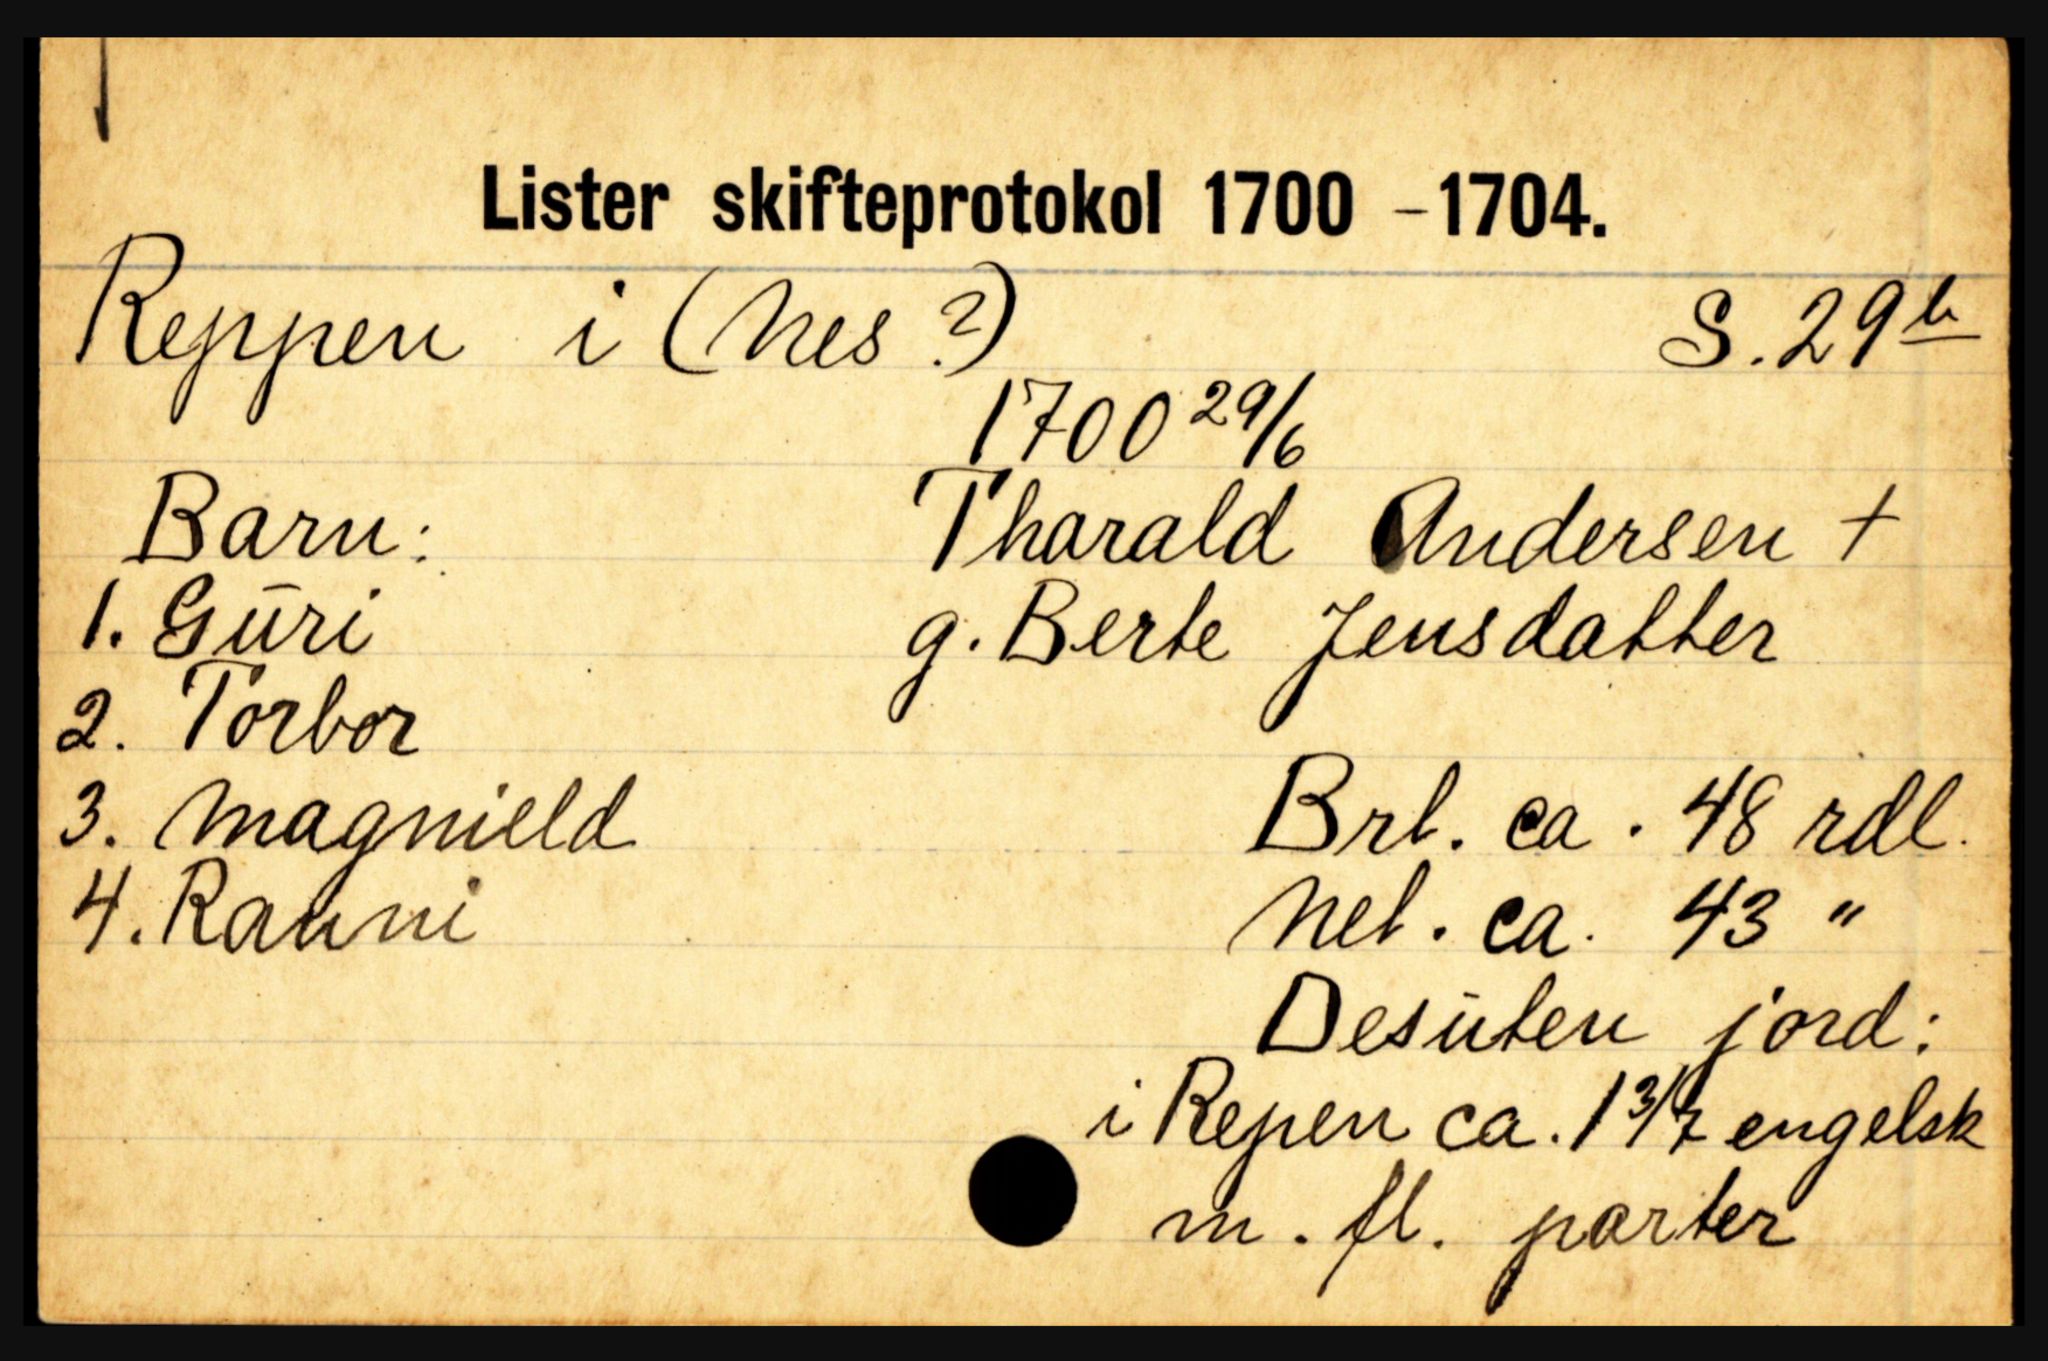 Lister skifteprotokol 1700 - 1704.
Reppen i (Nes ?) S. 29b
1700 29/6
Barn: Tharald Andersen +
1. Gūri g. Berte Jensdatter
2. Torbor
3. Magnield Brt. ca. 48 rdl.
4. Ranni Net. ca. 43 "
Desūten jord:
i Repen ca. 1 3/7 engelsk
m. fl. parter